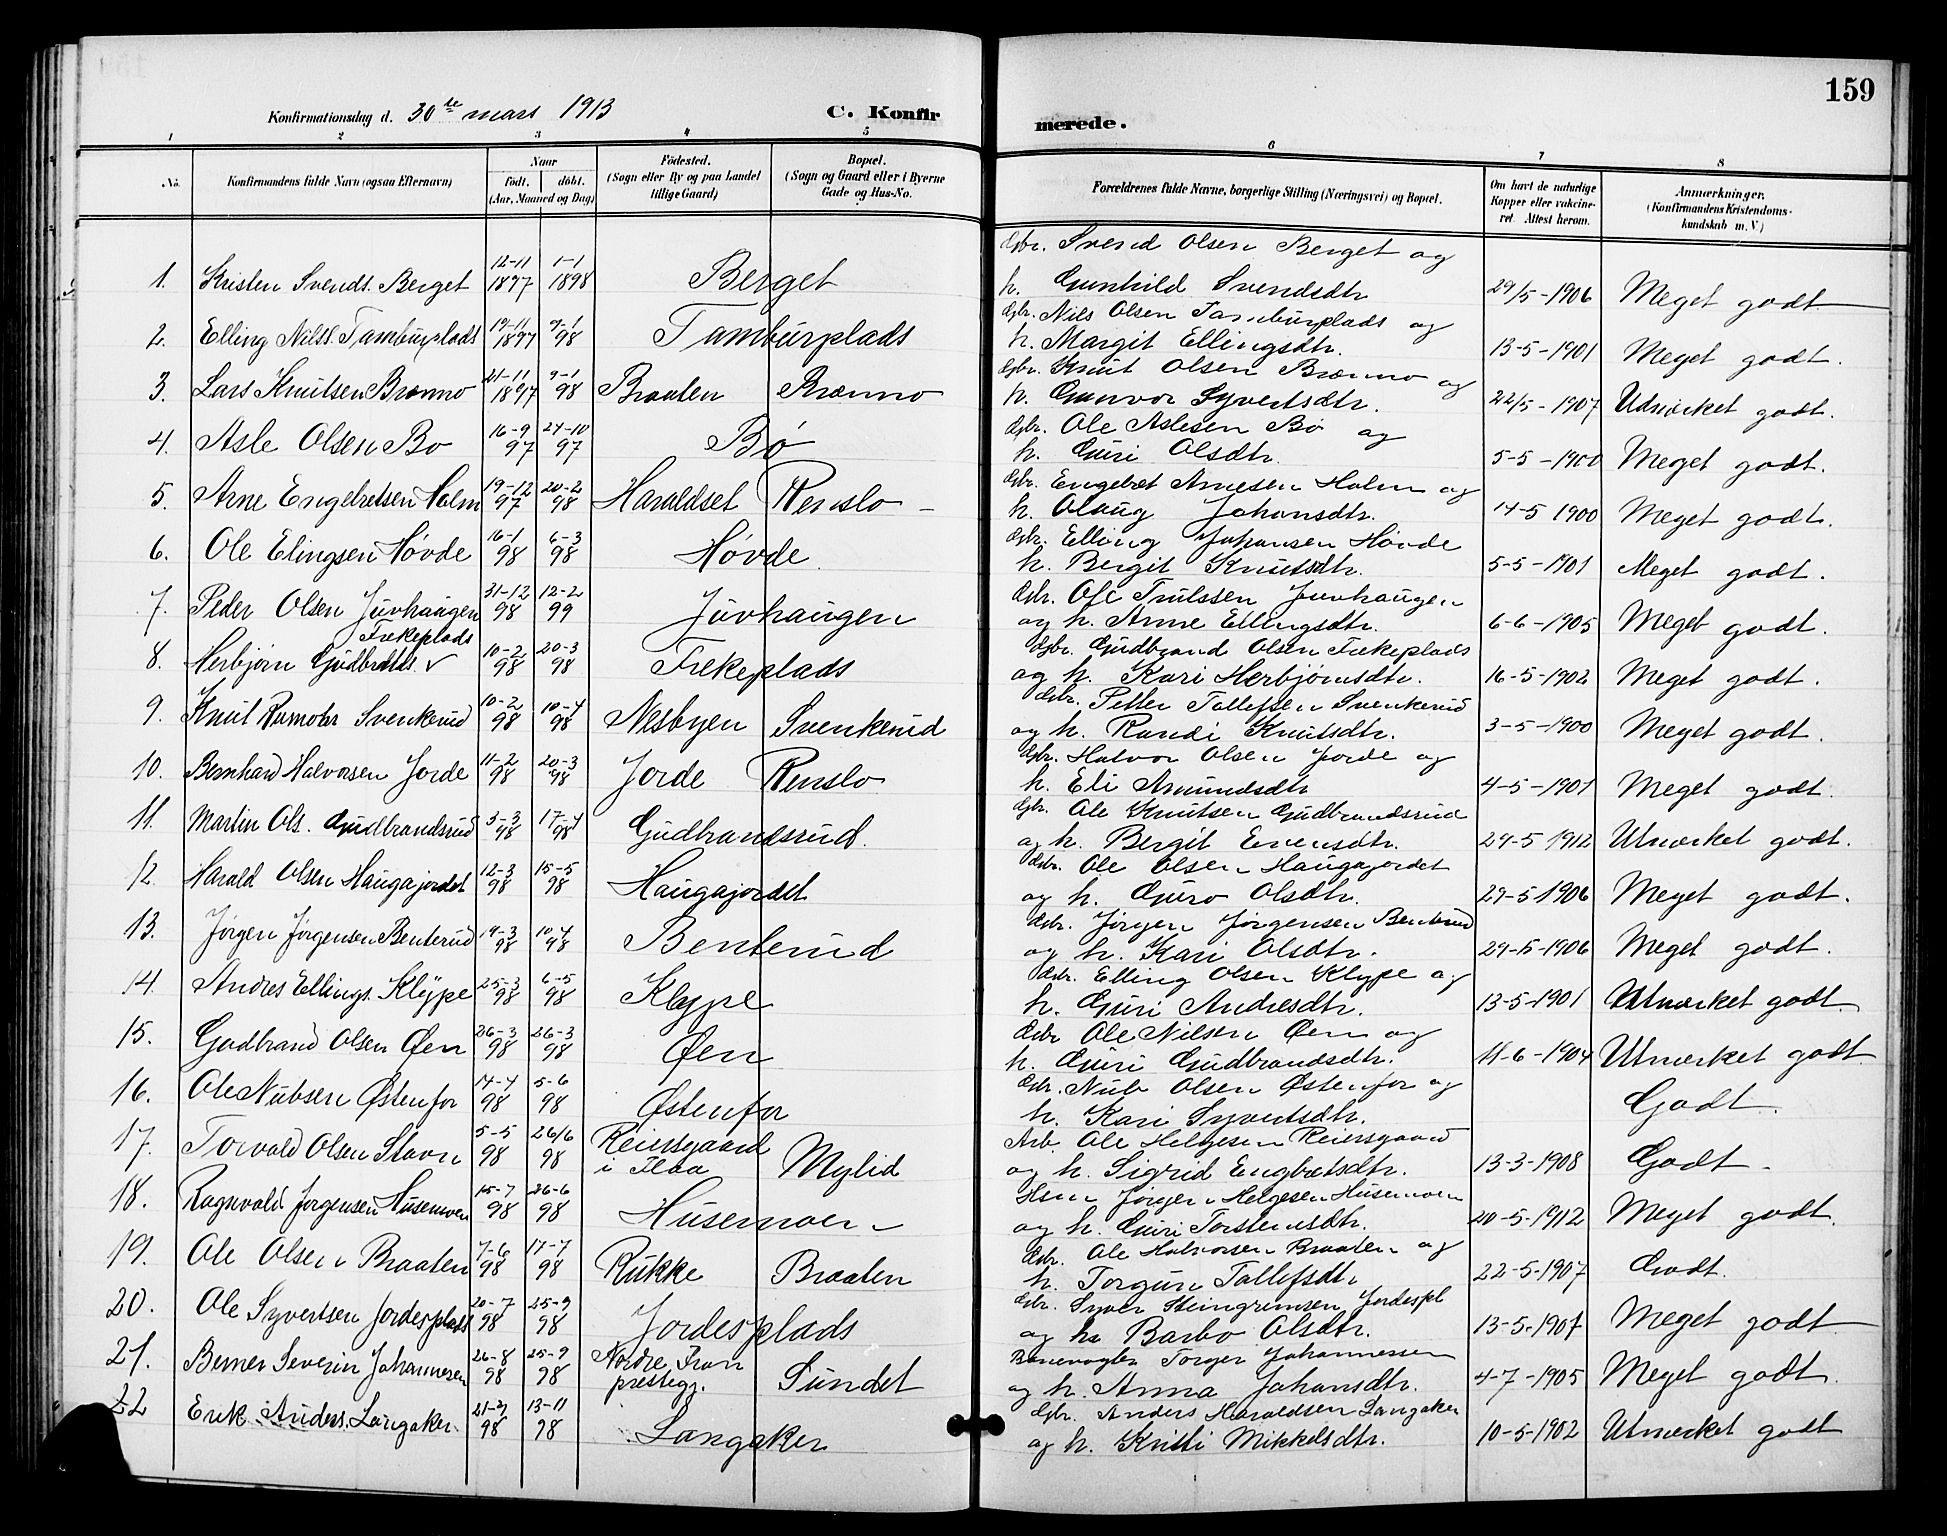 159
Konfirmationsdag d. 30te mars 1913 C. Konfir merede.
1 2 3 4 5 6 7 8
No. Konfirmandens fulde Navn (ogsaa Efternavn) Naar født. døbt. (Aar, Maaned og Dag) Fødested. (Sogn eller By og paa Landet tillige Gaard) Bopæl. (Sogn og Gaard eller i Byerne Gade og Hus-No. Forældrenes fulde Navne, borgerlige Stilling (Næringsvei) og Bopæl. Om havt de naturlige Kopper eller vakcineret. Attest herom. Anmærkninger. (Konfirmandens Kristendomskundskab m. V.)
Gbr. Svend Olsen Berget og
1. Kristen Svends. Berget 12-11 1897 1-1 1898 Berget h. Gunhild Svendsdtr 29/5-1906 Meget godt
Gbr. Nils Olsen Tamburplads og
2. Elling Nilss. Tamburplads 19-11 1897 9-1 98 Tamburplads h. Margit Ellingsdtr. 13-5-1901 Meget godt.
Gbr. Knut Olsen Brænno og
3. Lars Knutsen Brænno 21-11 1897 9-1 98 Braaten Brænno h. Gunvor Syvertsdtr. 22/5-1907 Udmærket godt.
Gbr. Ole Aslesen Bø og
4. Asle Olsen Bø 16-9 97 24-10 97 Bø h. Guri Olsdtr. 5-5-1900 Meget godt.
Gbr. Engebret Arnesen Holm og
5. Arne Engebretsen Holm 19-12 97 20-2 98 Haraldset Renslo h. Olaug Johansdtr. 14-5 1900 Meget godt.
Gbr. Elling Johansen Hovde
6. Ole Elingsen Høvde 16-1 98 6-3 98 Høvde. h. Bergit Knutsdtr. 5-5-1901 Meget godt.
Gbr. Ole Trulssen Juvhaugen
7. Peder Olsen Juvhaugen 31-12 98 12-2 99 Juvhaugen og h. Anne Ellingsdtr. 6-6-1905 Meget godt.
Gbr. Gudbrand Olsen Fekeplads
8. Herbjørn Gudbrds. Fekeplads 10-2 98 20-3 98 Fekeplads og h. Kari Herbjørnsdtr. 16-5-1902 Meget godt.
Gbr. Petter Tollefsen Svenkerud
9. Knut Rumohr Svenkerud 10-2 98 10-4 98 Nesbyen Svenkerud og h. Randi Knutsdtr. 3-5-1900 Meget godt.
Gbr. Halvor Olsen Jorde og
10. Bernhard Halvorsen Jorde 11-2 98 20-3 98 Jorde Renslo h. Eli Amundsdtr 4-5-1901 Meget godt.
Gbr. Ole Knutsen Gudbrandsrud
11. Martin Ols. Gudbrandsrud 3-3 98 17-4 98 Gudbrandsrud. og h. Bergit Evensdtr. 29-5 1912 Utmærket godt.
Gbr. Ole Olsen Haugajordet
12. Harald Olsen Haugajordet 12-3 98 15-5 98 Haugajordet og h. Guro Olsdtr. 29-5-1906 Meget godt.
Gbr. Jørgen Jørgensen Benterud
13. Jørgen Jørgensen Benterud 14-3 98 10-4 98 Benterud og h. Kari Olsdtr. 29-5-1906 Meget godt.
Gbr. Elling Olsen Klype og
14. Andres Ellings. Klype 25-3 98 6-5 98 Klype h. Guri Andresdtr. 13-5-1901 Utmærket godt.
Gbr Ole Nilsen Øen og
15. Gudbrand Olsen Øen 26-3 98 26-3 98 Øen h. Guri Gudbrandsdtr. 11-6-1904 Utmærket godt.
Gbr. Nub Olsen Østenfor og
16. Ole Nubsen Østenfor 14-4 98 5-6 98 Østenfor h. Kari Syvertsdtr. Godt.
Arb. Ole Helgesen Reiersgaard
17. Torvald Olsen Stavn 5-5 98 26/6 98 Reiersgaard i Flaa Mylid og h. Sigrid Engbretsdtr. 13-3-1908 Godt.
Hsm Jørgen Helgesen Husemoen
18. Ragnvald Jørgensen Husemoen 15-7 98 26-6 98 Husemoen og h. Guri Torstensdtr. 20-5-1912 Meget godt.
Gbr. Ole Halvorsen Braaten og
19. Ole Olsen Braaten 7-6 98 17-7 98 Rukke Braaten h. Torgun Tollefsdtr 22-5-1907 Godt.
Gbr. Syver Steingrimsen Jordespl
20. Ole Syvertsen Jordesplads 20-7 98 25-9 98 Jordesplads og h. Barbo Olsdtr. 13-5-1907 Meget godt
Banevogter Torger Johannessen
21. Berner Severin Johannesen 26-8 98 25-9 98 Nordre Fron prestegj. Sundet og h. Anna Johansdtr. 4-7-1905 Meget godt.
Gbr. Anders Haraldsen Langaker
22 Erik Anders. Langaker. 21-9 98 13-11 98 Langaker og h. Kristi Mikkelsdtr. 10-5-1902 Utmærket godt